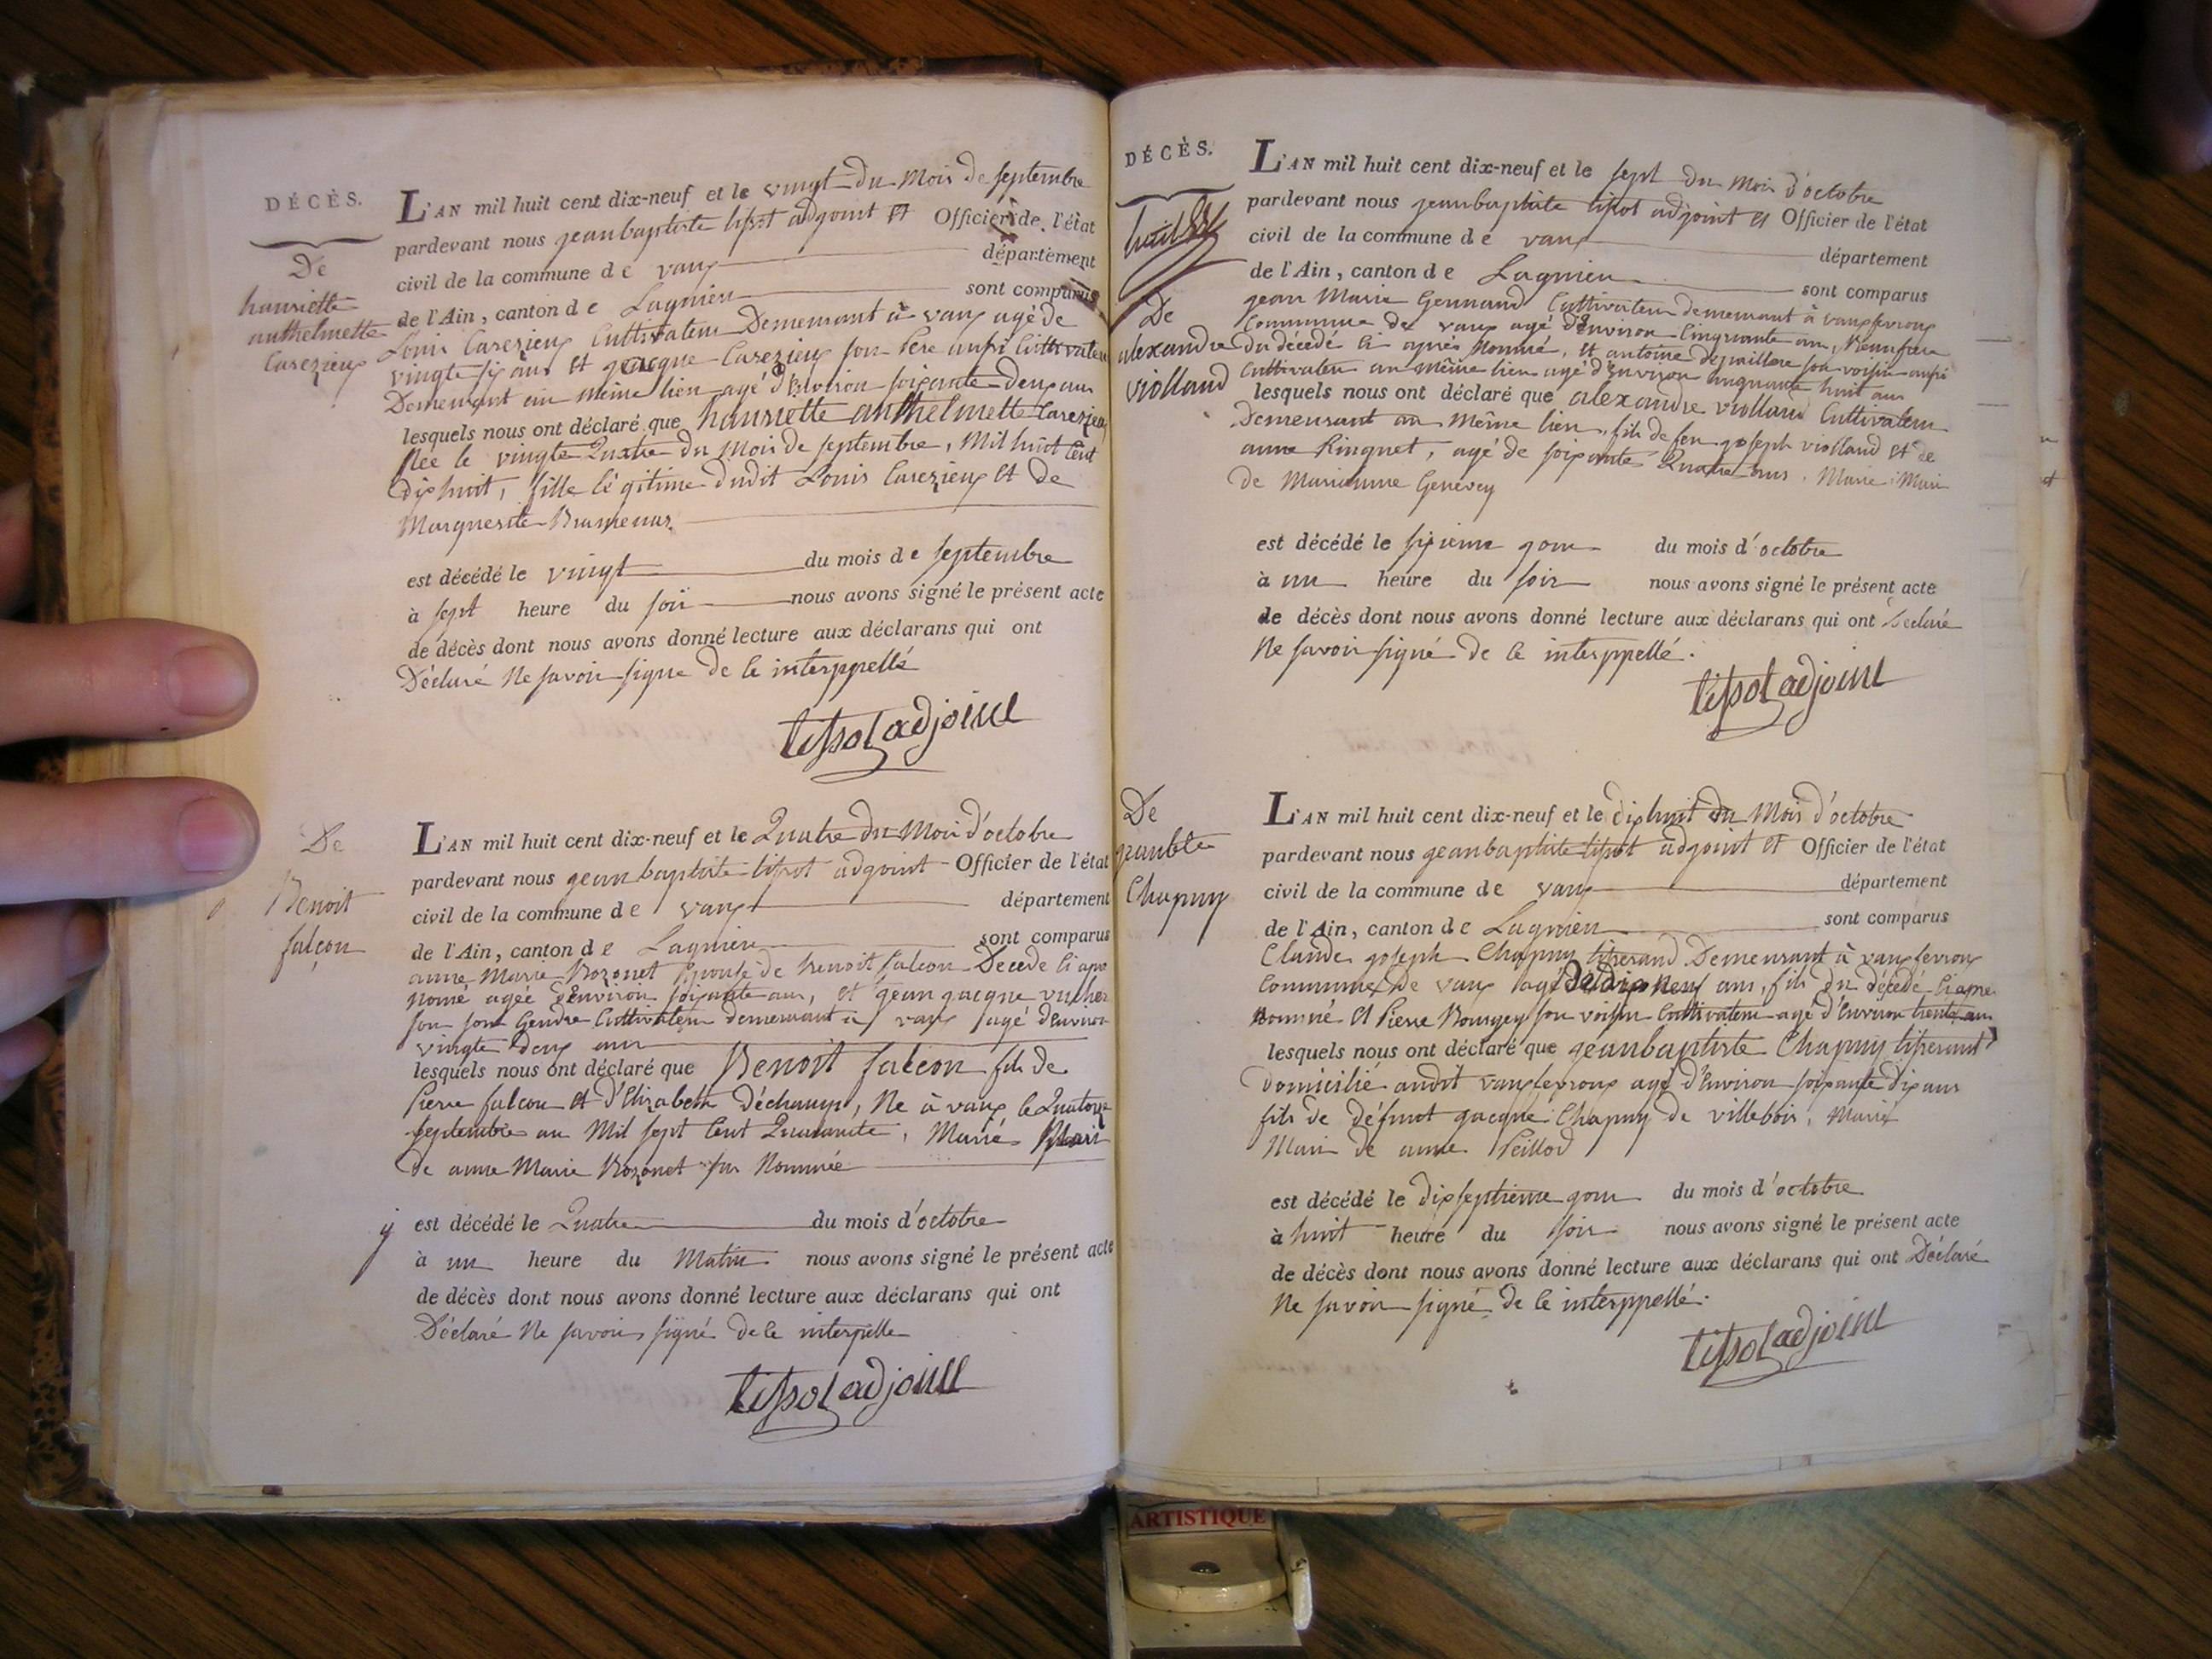 DÉCÈS.
De
henriette
anthelmette
Carezieux
L'AN mil huit cent dix-neuf et le vingt du Mois de septembre
pardevant nous jeanbaptiste tissot adjoint et Officier de l'état
civil de la commune de vaux département
de l'Ain, canton de Lagnieu sont comparus
Louis Carezieux Cultivateur Demeurant à vaux agé de
vingte six ans et jacque Carezieux son Pere aussi Cultivateur
Demeurant au même lieu agé d'Environ soixante Deux ans
lesquels nous ont déclaré que henriette anthelmette Carezieux
Née le vingte Quatre du Mois de septembre, Mil huit Cent
Dix huit, fille légitime dudit Louis Carezieux et de
Marguerite
est décédé le vingt du mois de septembre
à sept heure du soir nous avons signé le présent acte
de décès dont nous avons donné lecture aux déclarans qui ont
Déclaré Ne savoir signé de ce interppellé
tissot adjoint
De
Benoit
falcon
L'AN mil huit cent dix-neuf et le Quatre du Mois d'octobre
pardevant nous jean baptiste tissot adjoint Officier de l'état
civil de la commune de vaux département
de l'Ain, canton de Lagnieu sont comparus
anne Marie Bozonet Epouse de Benoit falcon Décédé Ci apre
nomé agée d'Environ soixante ans, et jean jacque
son Gendre Cultivateur demeurant à vaux agé d'Environ
vingte deux ans
lesquels nous ont déclaré que Benoit falcon fils de
Pierre falcon et d'Elizabeth Déchamp, Né à vaux le Quatorze
septembre an Mil sept Cent Quarante, Marié Mari
de anne Marie Bozonet sus Nommée
y est décédé le Quatre du mois d'octobre
à un heure du Matin nous avons signé le présent acte
de décès dont nous avons donné lecture aux déclarans qui ont
Déclaré Ne savoir signé de ce interpellé
tissot adjoint
DÉCÈS.
De
alexandre
violland
L'AN mil huit cent dix-neuf et le sept du Mois d'octobre
pardevant nous jeanbaptiste tissot adjoint et Officier de l'état
civil de la commune de vaux département
de l'Ain, canton de Lagnieu sont comparus
jean Marie Gennand Cultivateur demeurant à vauxfevroux
Commune de vaux agé d'Environ Cinquante ans, Beaufrere
du décédé Ci après Nommé, et antoine son voisin aussi
Cultivateur au même lieu agé d'Environ cinquante huit ans
lesquels nous ont déclaré que alexandre violland Cultivateur
Demeurant au Même lieu, fils de feu joseph violland et de
anne Ringuet, agé de soixante Quatre ans, Marié Mari
de Marianne Genevey
est décédé le sixieme jour du mois d'octobre
à un heure du soir nous avons signé le présent acte
de décès dont nous avons donné lecture aux déclarans qui ont Declaré
Ne savoir signé de ce interppellé.
tissot adjoint
De
jeanbte
Chapuy
L'AN mil huit cent dix-neuf et le dixhuit du Mois d'octobre
pardevant nous jeanbaptiste tissot adjoint et Officier de l'état
civil de la commune de vaux département
de l'Ain, canton de Lagnieu sont comparus
Claude joseph Chapuy tisserand Demeurant à vauxfevroux
Commune de vaux agé De dix Neuf ans, fils du décédé Ci apre
nommé et Pierre Bourgey son voisin Cultivateur agé d'Environ trente ans
lesquels nous ont déclaré que jeanbaptiste Chapuy tisserand
Domicilié audit vauxfevroux agé d'Environ soixante Dix ans
fils de défunt jacque Chapuy de villebois, Marié
Mari de anne Peillod
est décédé le dixseptieme jour du mois d'octobre
à huit heure du soir nous avons signé le présent acte
de décès dont nous avons donné lecture aux déclarans qui ont Déclaré
Ne savoir signé de ce interppellé.
tissot adjoint
ARTISTIQUE